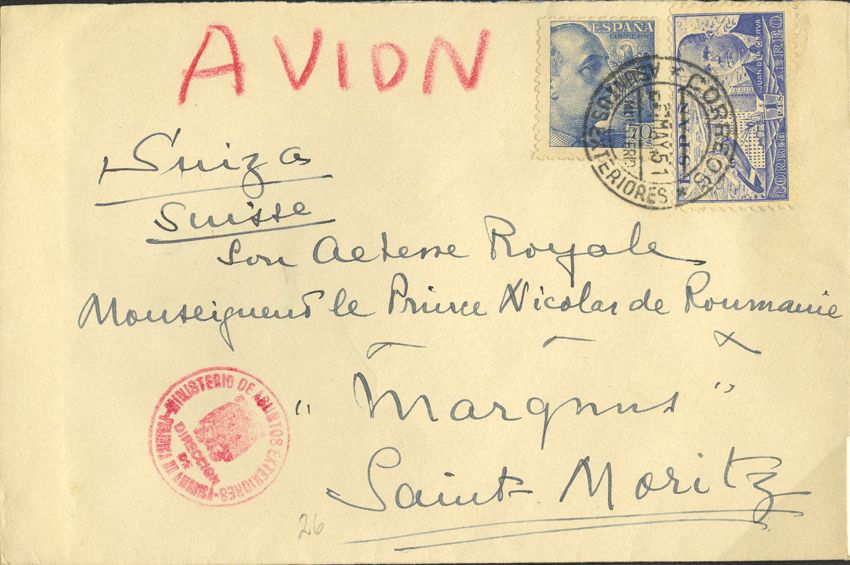 AVION
ESPAÑA
CORREOS
JUAN DE LA CIERVA
1 PTS
CORREO AEREO
CORREOS
ASUNTOS EXTERIORES
MAY 51
Suiza
Suisse
Son Altesse Royale
Monseigneur le Prince Nicolas de Roumanie
"Margnus"
Saint-Moritz
MINISTERIO DE ASUNTOS EXTERIORES
DIRECCION
DE
26